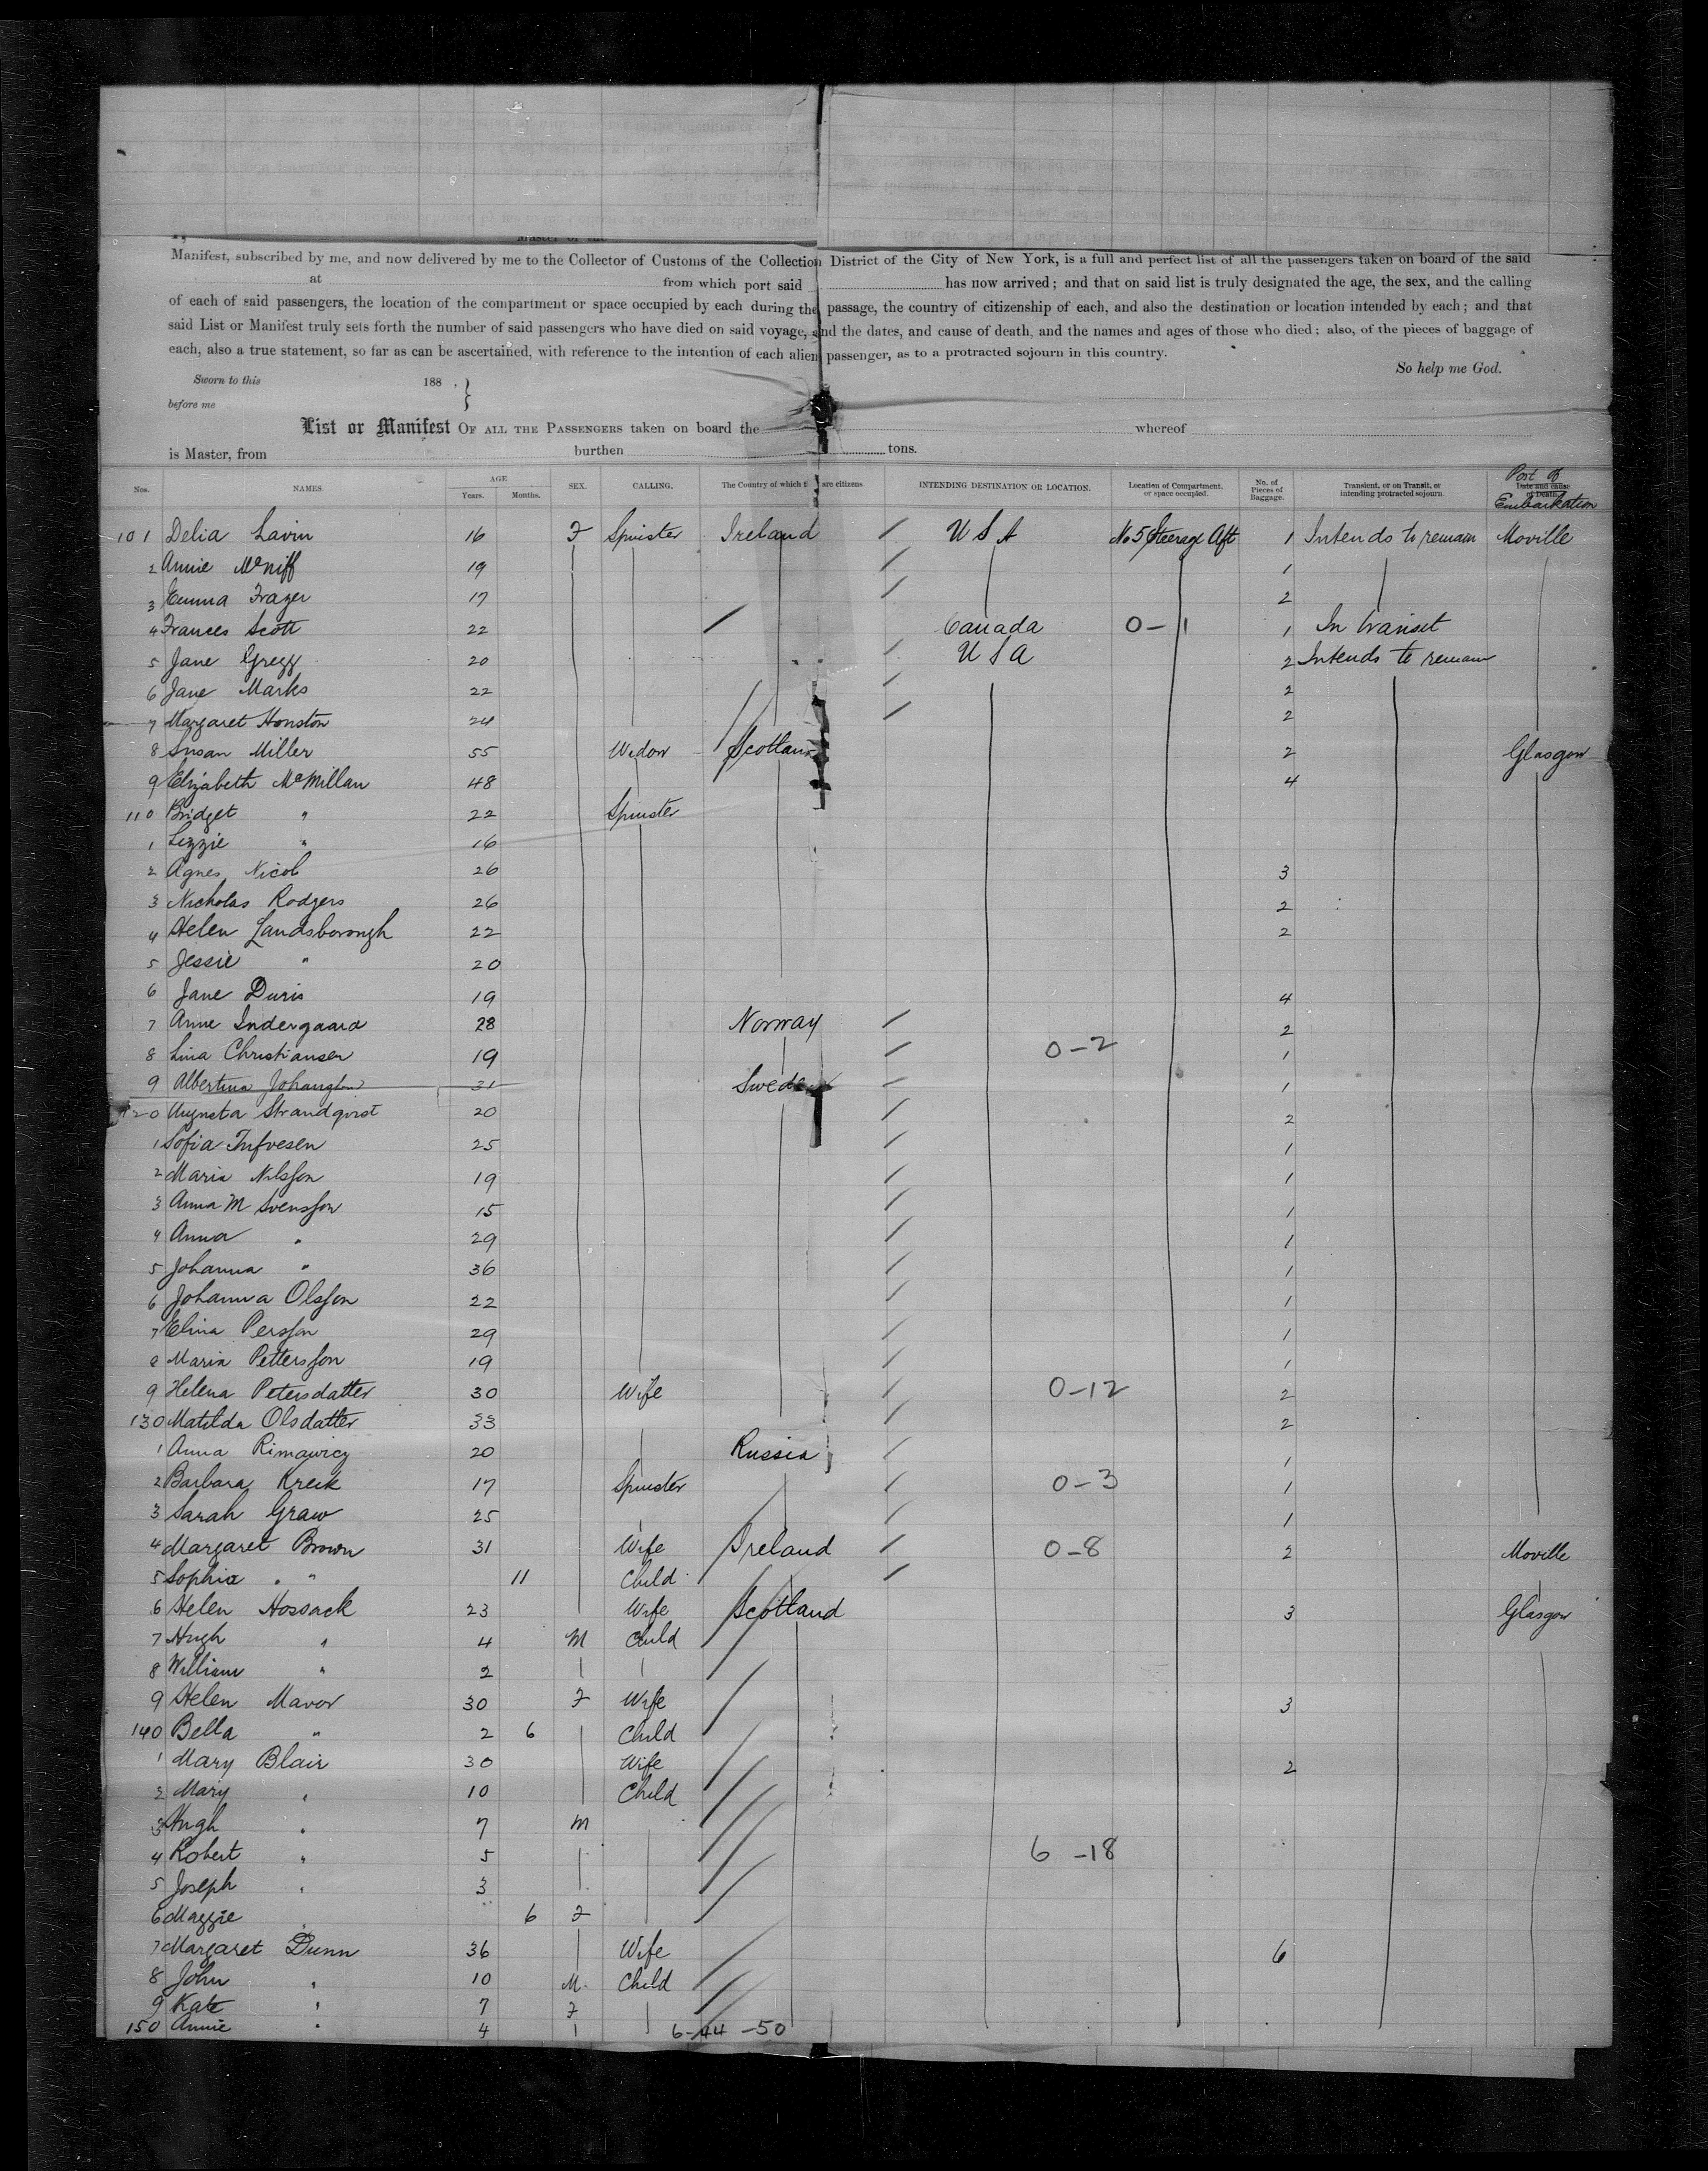 Master of the
Manifest, subscribed by me, and now delivered by me to the Collector of Customs of the Collection District of the City of New York, is a full and perfect list of all the passengers taken on board of the said
at from which port said has now arrived; and that on said list is truly designated the age, the sex, and the calling
of each of said passengers, the location of the compartment or space occupied by each during the passage, the country of citizenship of each, and also the destination or location intended by each; and that
said List or Manifest truly sets forth the number of said passengers who have died on said voyage, and the dates, and cause of death, and the names and ages of those who died; also, of the pieces of baggage of
each, also a true statement, so far as can be ascertained, with reference to the intention of each alien passenger, as to a protracted sojourn in this country.
So help me God.
Sworn to this 188 , }
before me
List or Manifest OF ALL THE PASSENGERS taken on board the whereof
is Master, from burthen tons.
Nos. NAMES. AGE Years. Months. SEX. CALLING. The Country of which t are citizens INTENDING DESTINATION OR LOCATION. Location of Compartment, or space occupied. No. of Pieces of Baggage. Transient, or on Transit, or intending protracted sojourn. Date and cause of Death. Port of Embarkation
101 Delia Lavin 16 F Spinster Ireland / U S A No 5 Steerage Aft 1 Intends to remain Moville
2 Annie McNiff 19 / 1
3 Emma Frazer 17 / 2
4 Frances Scott 22 / Canada 0-1 1 In transit
5 Jane Gregg 20 / U S A 2 Intends to remain
6 Jane Marks 22 / 2
7 Margaret Houston 24 / 2
8 Susan Miller 55 Widow Scotland 2 Glasgow
9 Elizabeth McMillan 48 4
110 Bridget " 22 Spinster
1 Lizzie " 16
2 Agnes Nicol 26 3
3 Nicholas Rodgers 26 2
4 Helen Landsborough 22 2
5 Jessie " 20
6 Jane Duris 19 4
7 Anne Indergaard 28 Norway / 2
8 Lina Christiansen 19 / 0-2 1
9 Albertina 31 Sweden / 1
120 Augusta Strandqvist 20 / 2
1 Sofia Tufvesen 25 / 1
2 Maria Nilsson 19 / 1
3 Anna M Svensson 15 / 1
4 Anna " 29 / 1
5 Johanna " 36 / 1
6 Johanna Olsson 22 / 1
7 Elina Persson 29 / 1
8 Maria Pettersson 19 / 1
9 Helena Petersdatter 30 Wife / 0-12 2
130 Matilda Olsdatter 33 / 2
1 Anna Rimawicz 20 Russia / 1
2 Barbara Kreik 17 Spinster / 0-3 1
3 Sarah Graw 25 / 1
4 Margaret Brown 31 Wife Ireland / 0-8 2 Moville
5 Sophia " 11 Child /
6 Helen Hossack 23 Wife Scotland 3 Glasgow
7 Hugh " 4 M Child
8 William " 2
9 Helen Mavor 30 F Wife 3
140 Bella " 2 6 Child
1 Mary Blair 30 Wife 2
2 Mary " 10 Child
3 Hugh " 7 M
4 Robert " 5 6-18
5 Joseph " 3
6 Maggie 6 F
7 Margaret Dunn 36 Wife 6
8 John " 10 M. Child
9 Kate " 7 F
150 Annie " 4 6-44-50